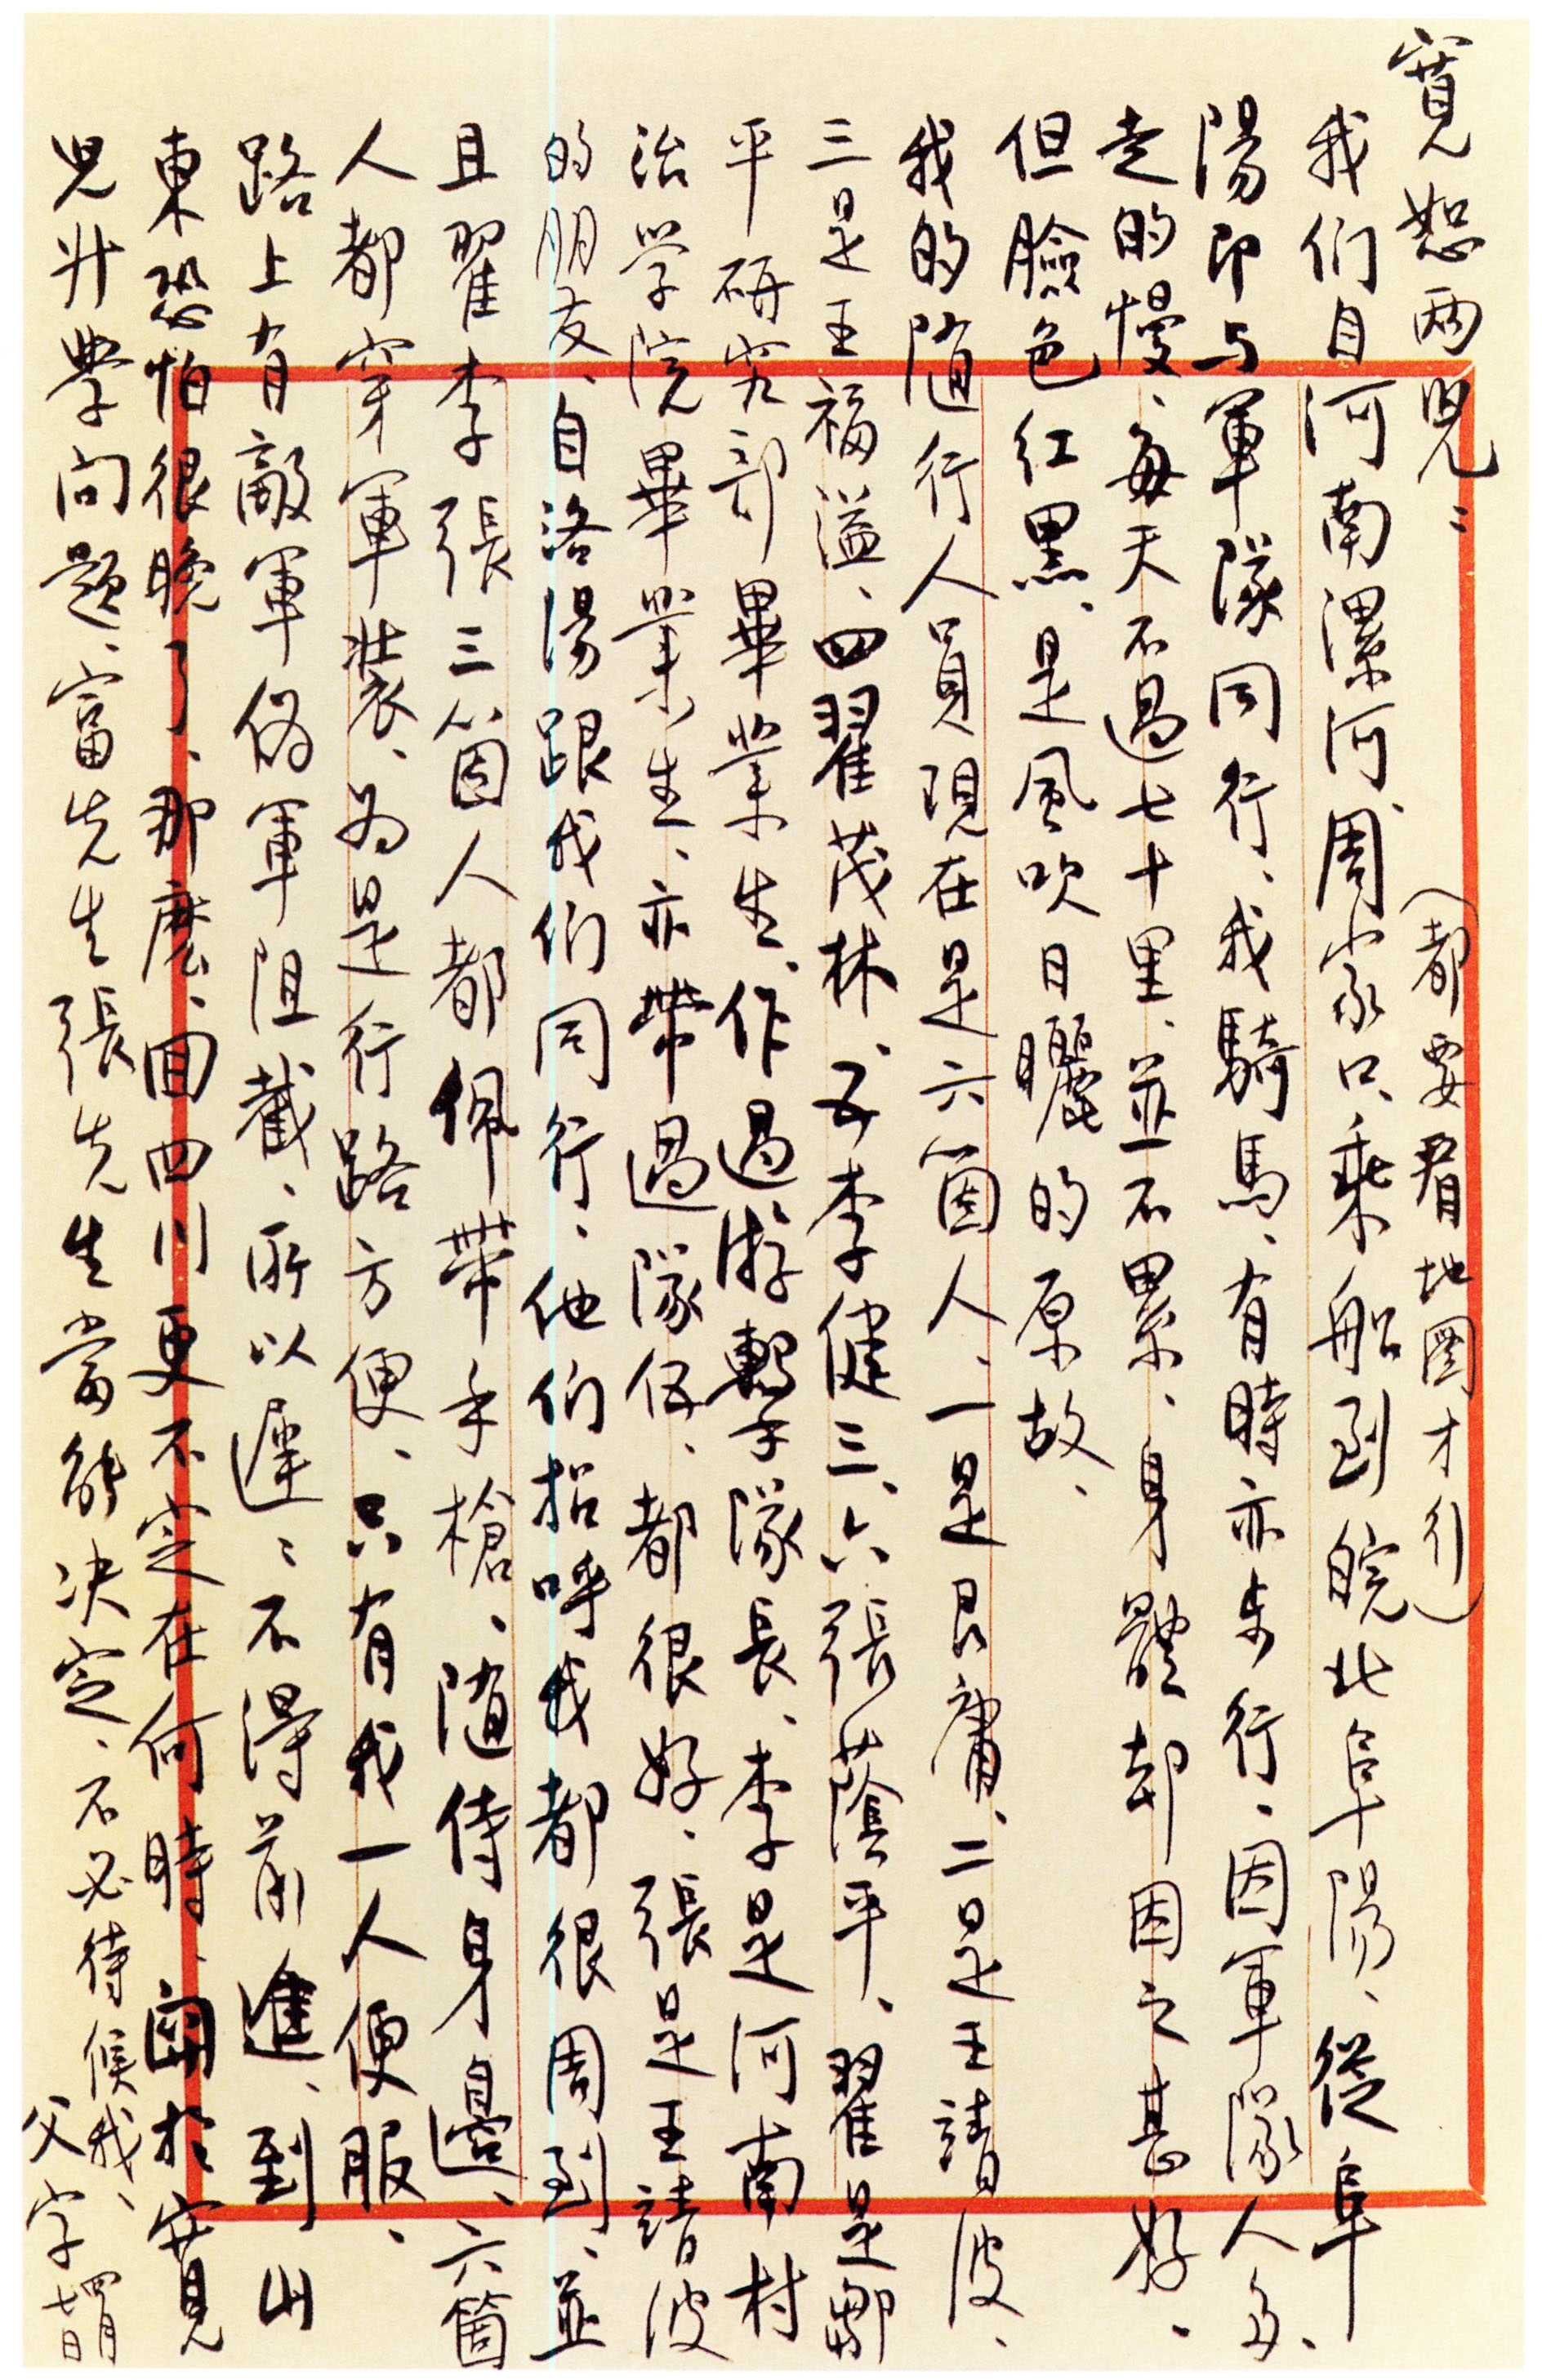 寬恕兩兒：（都要看地圖才行）
我们自河南漯河、周家口、乘船到皖北阜陽、從阜
陽即与軍隊同行、我騎馬、有時亦步行、因軍隊人多、
走的慢、每天不過七十里、並不累、身體却因之甚好、
但臉色红黑、是風吹日曬的原故、
我的随行人員現在是六箇人、一是艮庸、二是王靖波、
三是王福溢、四翟茂林、五李健三、六張蔭平、翟是鄒
平研究部畢業生、作過游擊隊長、李是河南村
治学院畢業生、亦带過隊伍、都很好、張是王靖波
的朋友、自洛陽跟我们同行、他们招呼我都很周到、並
且翟李張三箇人都佩带手槍、随侍身邊、六箇
人都穿軍裝、为是行路方便、只有我一人便服、
路上有敵軍偽軍阻截、所以遲遲不得前進、到山
東恐怕很晚了、那麽、回四川更不定在何時、関於寬
兒升學问题、富先生張先生當能决定、不必待候我、
父字 四月七日